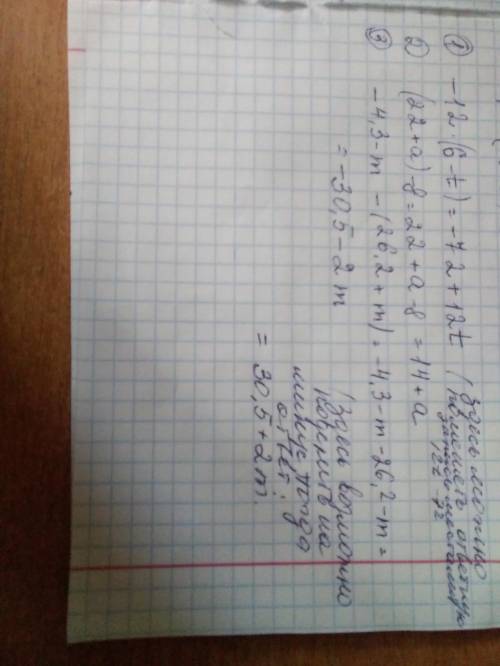 ① −12·(6−t) = −72+12t (здесь можно
поменять ответную
запись местами
12t−72
② (22+a)−8 = 22+a−8 = 14+a
③ −4,3−m −(26,2+m) = −4,3−m−26,2−m =
= −30,5−2m
(здесь возможно
на
минус тогда
ответ:
= 30,5+2m.